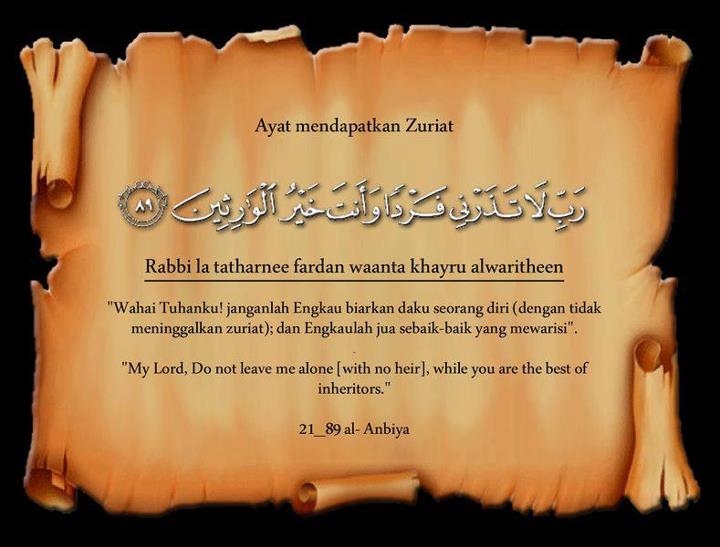 Ayat mendapatkan Zuriat
رَبِّ لَا تَذَرْنِي فَرْدًا وَأَنتَ خَيْرُ ٱلْوَٰرِثِينَ ٨٩
Rabbi la tatharnee fardan waanta khayru alwaritheen
"Wahai Tuhanku! janganlah Engkau biarkan daku seorang diri (dengan tidak
meninggalkan zuriat); dan Engkaulah jua sebaik-baik yang mewarisi".
"My Lord, Do not leave me alone [with no heir], while you are the best of
inheritors."
21_89 al- Anbiya